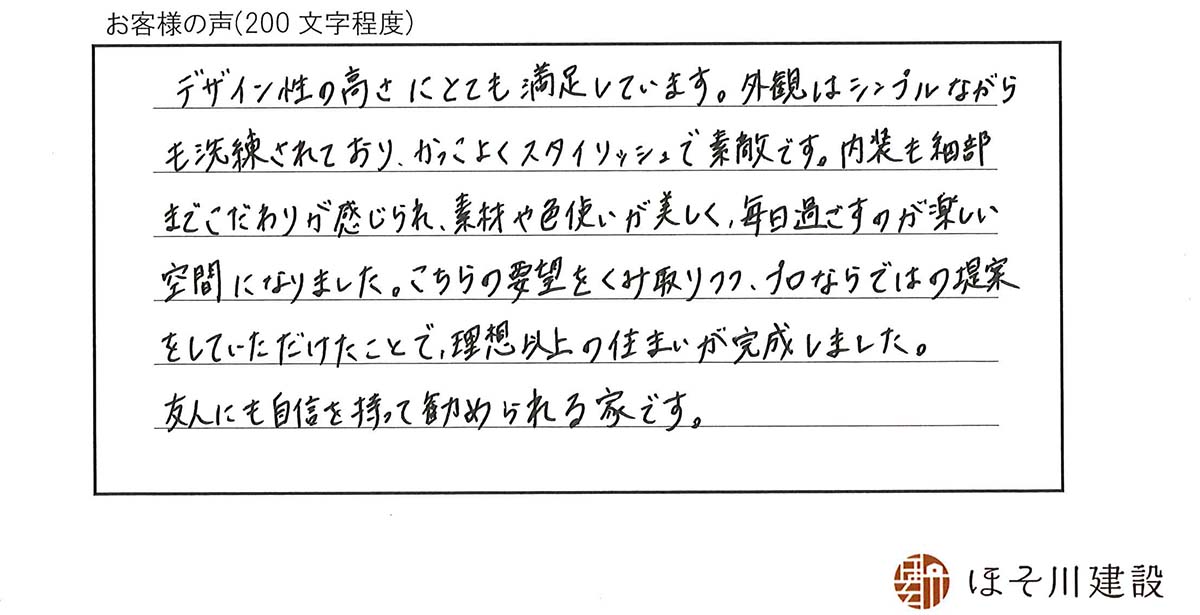 お客様の声(200 文字程度)
デザイン性の高さにとても満足しています。外観はシンプルながら
も洗練されており、かっこよくスタイリッシュで素敵です。内装も細部
までこだわりが感じられ、素材や色使いが美しく、毎日過ごすのが楽しい
空間になりました。こちらの要望をくみ取りつつ、プロならではの提案
をしていただけたことで、理想以上の住まいが完成しました。
友人にも自信を持って勧められる家です。
ほそ川建設